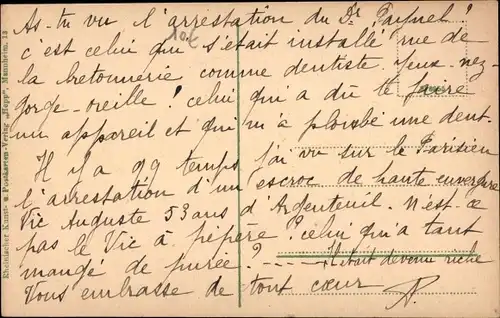 As-tu vu l'arrestation du Dr
c'est celui qui s'était installé rue de
la bretonnerie comme dentiste. Yeux-nez-
gorge-oreille! celui qui a dû te faire
un appareil et qui m'a plombé une dent.
Il y a qq temps j'ai vu sur le Parisien
l'arrestation d'un escroc de haute envergure
Vic Auguste 53 ans d'Argenteuil. N'est-ce
pas le Vic à pépère? celui qu'a tant
mangé de purée? — Il était devenu riche
Vous embrasse de tout cœur
Rheinischer Kunst- u. Postkarten-Verlag "Hepp", Mannheim, 13